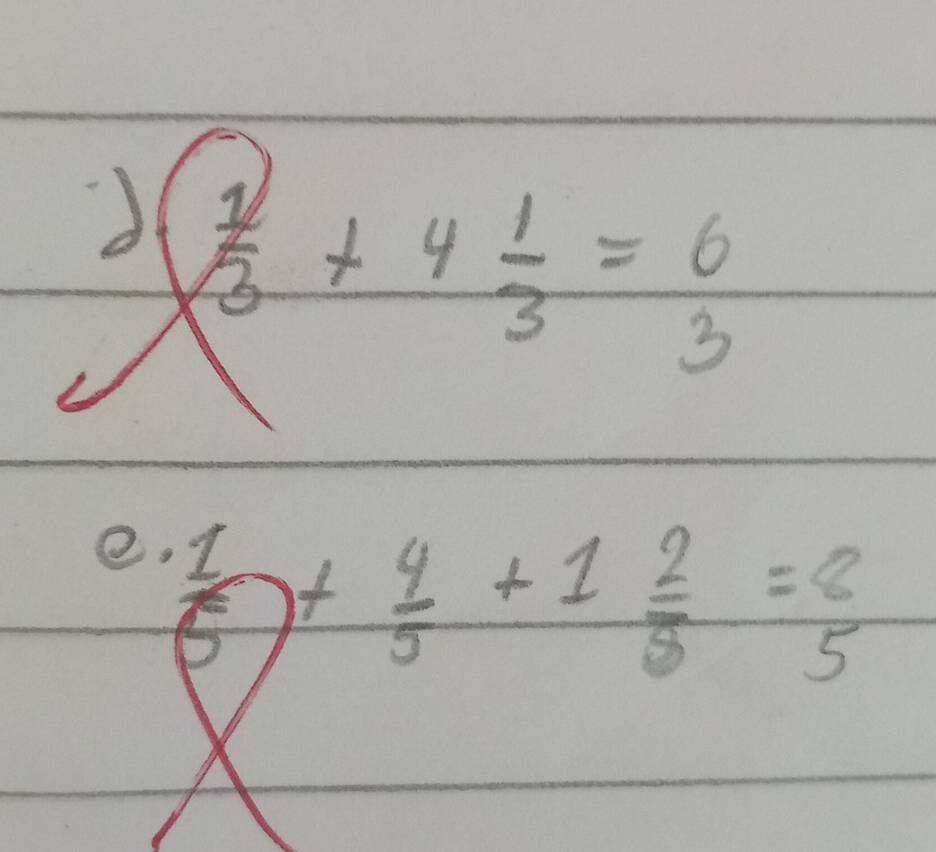 d) 1/3 + 4 1/3 = 6/3
e. 1/5 + 4/5 + 1 2/5 = 8/5